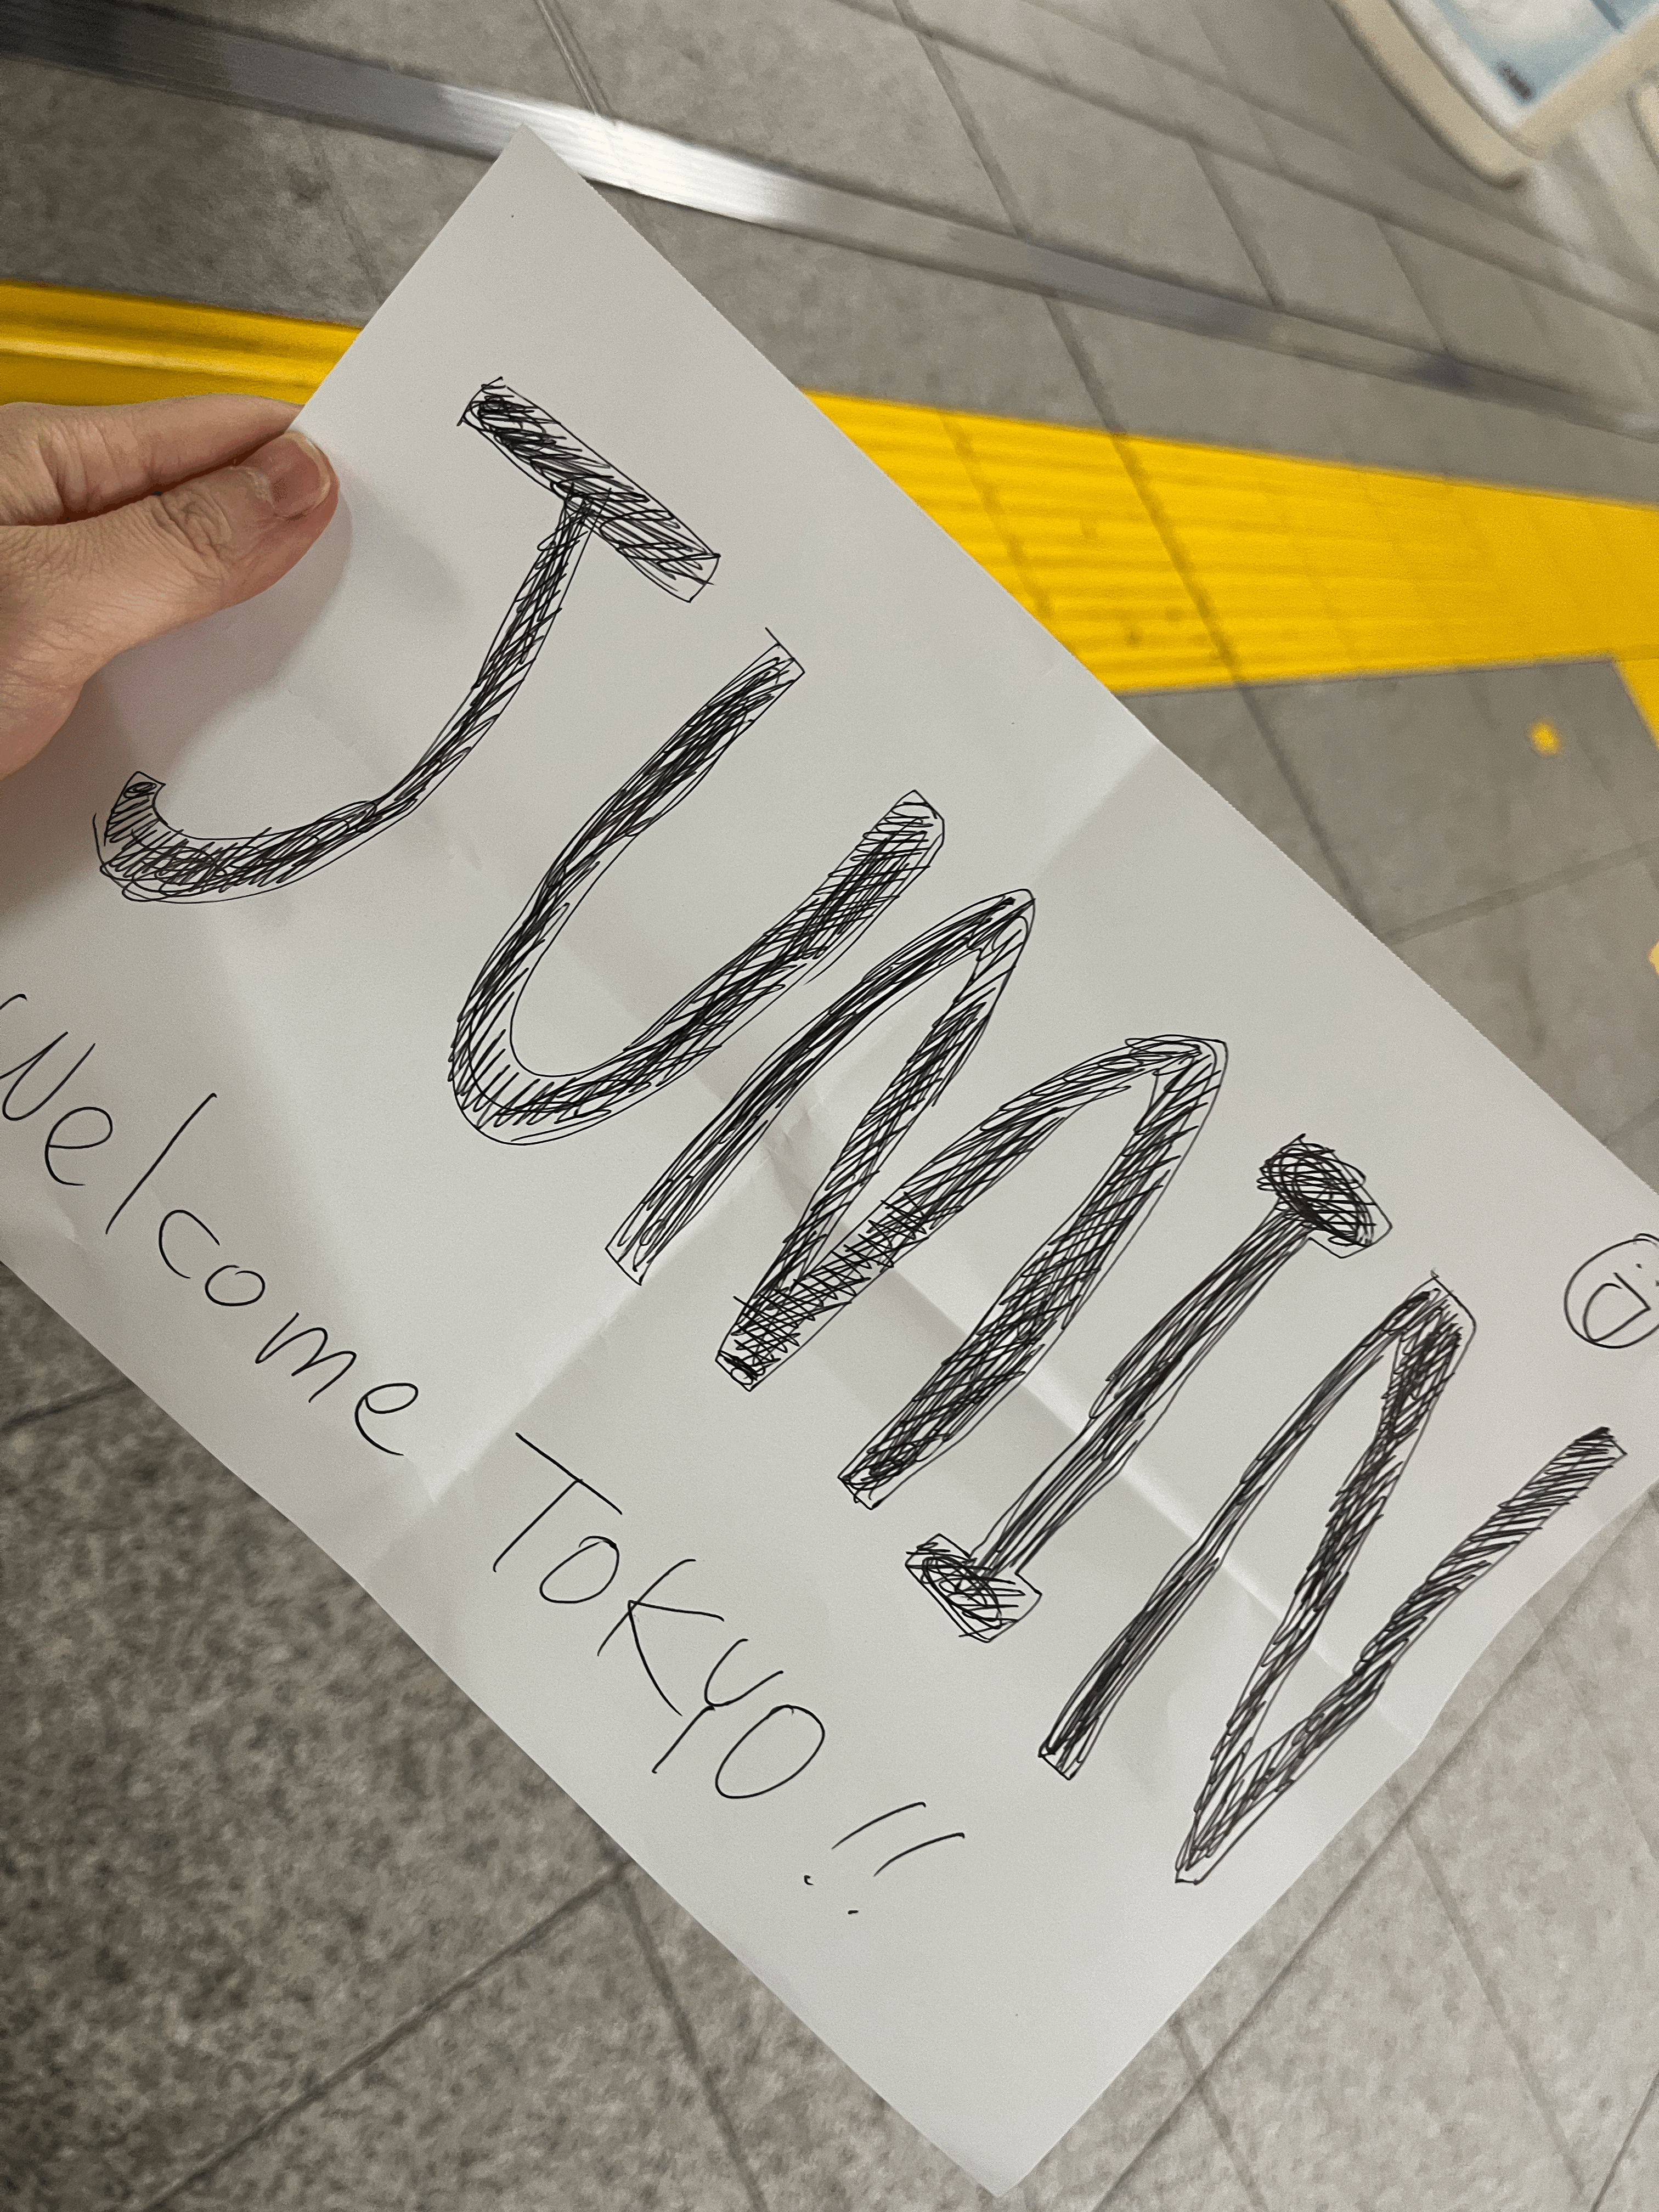 JUMIN
Welcome TOKYO!!